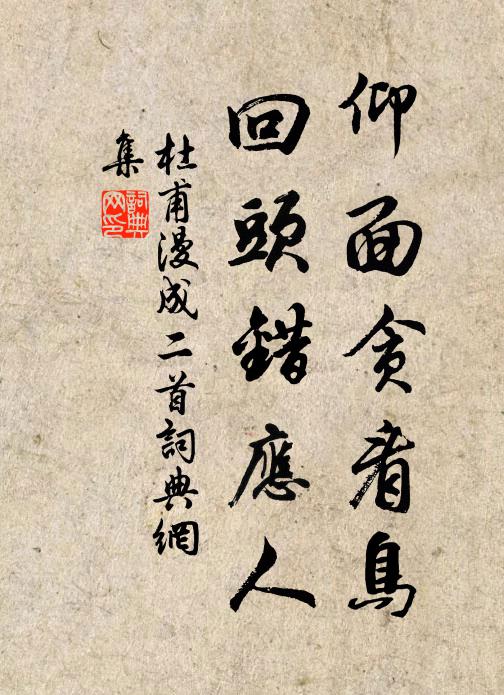 仰面贪看鳥
回頭錯應人
杜甫漫成二首詞典網
集
詞典网印